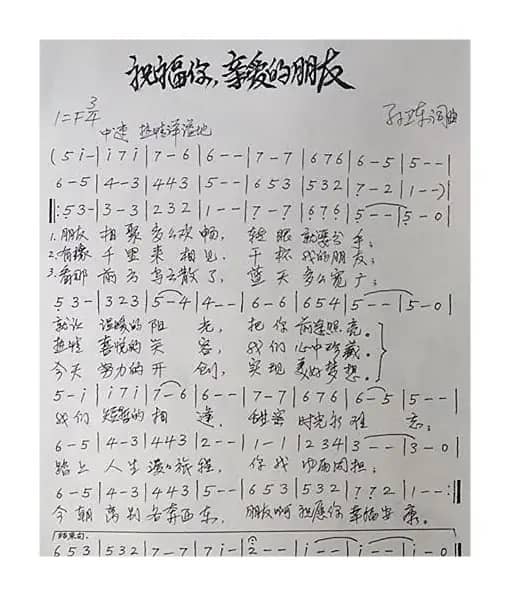 祝福你,亲爱的朋友
1=F 3/4
中速 热情洋溢地
孙卫东词曲
(5 i-|i 7 i|7-6|6--|7-7|6 7 6|6-5|5--|
6-5|4-3|4 4 3|5--|6 5 3|5 3 2|7-2|1--)|
‖:5 3-|3-3|2 3 2|1--|7-7|6 7 6|5--|5-0|
1.朋友 相聚 多么欢畅, 转眼 就要分手;
2.有缘 千里来相见, 干杯 我的朋友;
3.看那 前方 乌云散了, 蓝天 多么宽广;
5 3-|3 2 3|5-4|4--|6-6|6 5 4|5--|5-0|
就让 温暖的阳光, 把你 前途照亮。
热情 喜悦的笑容, 我们 心中珍藏。
今天 努力的开创, 实现 美好梦想。
5-i|i 7 i|7-6|6--|7-7|6 7 6|6-5|5--|
我们 短暂的相逢, 甜蜜 时光永难忘;
6-5|4-3|4 4 3|2--|1-1|2 3 4|3--|3-0|
踏上 人生漫漫旅程, 你我
6-5|4-3|4 4 3|5--|6 5 3|5 3 2|7 7 2|1--:‖
今朝 离别各奔西东, 朋友啊 祝愿你 幸福安康。
结束句.
6 5 3|5 3 2|7-7|7 i-|2--|i--|i--|i-0